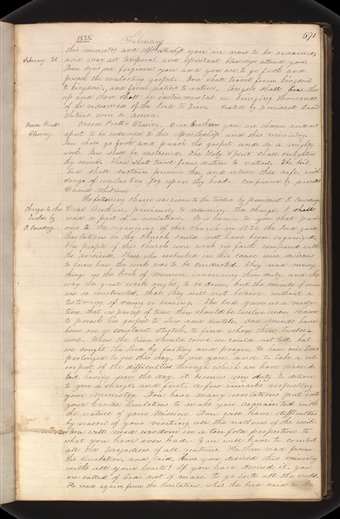 1835 February 671
this ministry and apostleship you are now to be ordained,
February 21 and may all temporal and spiritual blessings attend you.
Your sins are forgiven you and you are to go forth and
preach the everlasting gospel. You shall travel from kingdom
to kingdom, and from nation to nation. Angels shall bear thee
up and thou shalt be instrumental in bringing thousands
of the redeemed of the Lord to Zion.
Orson Pratt's Blessing. Orson Pratt's blessing. Dear Brother, you are chosen and set
apart to be ordained to this Apostleship and this ministry.
You shall go forth and preach the gospel and do a mighty
work. You shall be sustained. The Holy Spirit shall enlighten
thy mind. Thou shalt travel from nation to nation. The
Lord shall preserve thee, and return thee safe with
songs of everlasting joy upon thy head.
The following charge was given to the Twelve by president O. Cowdery
Charge to the Twelve by O. Cowdery. Dear Brethren, previously to delivering the charge, I shall
read a part of a revelation. It is known to you that previous
to the organizing of this church in 1830, the Lord gave
revelations or the church could not have been organized.
The people of this church were weak in faith compared with
the ancients. Those who embarked in this cause were desirous
to know how the work was to be conducted. They read many
things in the Book of Mormon, concerning their duty, and the
way the great work ought to be done; but the minds of men
are so constructed that they will not believe, without a
testimony of seeing or hearing. The Lord gave us a revelation
that in process of time there should be twelve men chosen
to preach his gospel to Jew and Gentile. Our minds have
been on a constant stretch to find who these twelve
were. When the time should come we could not tell; but
we sought the Lord by fasting and prayer, to have our lives
prolonged to see this day, to see you, and to take a retrospect
of the difficulties through which we have passed;
but having seen the day, it becomes my duty to deliver
to you a charge; and first, a few remarks respecting
your ministry. You have many revelations put into
your hands; revelations to make you acquainted with
the nature of your mission. You will have difficulties
by reason of your visiting all the nations of the world.
You will need wisdom in a ten fold proportion to
what you have ever had. You will have to combat
all the prejudices of all nations. He then read from
the revelation and said, Have you desired this ministry
with all your hearts? If you have desired it, you
are called of God, not of man, to go into all the world.
He read again from the revelation, what the Lord said to the